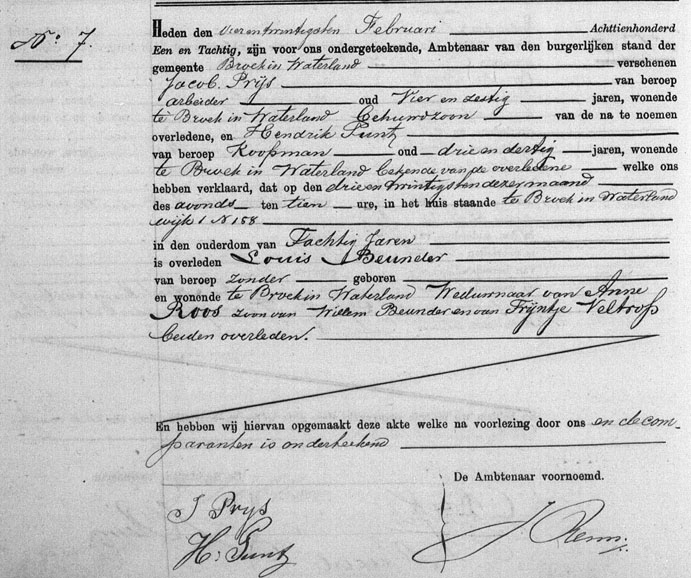 No. 7.
Heden den vierentwintigsten Februari Achttienhonderd
Een en Tachtig, zijn voor ons ondergeteekende, Ambtenaar van den burgerlijken stand der
gemeente Broek in Waterland verschenen
Jacob Prijs van beroep
arbeider oud Vier en zestig jaren, wonende
te Broek in Waterland Behuwdzoon van de na te noemen
overledene, en Hendrik Puntz
van beroep Koopman oud drie en dertig jaren, wonende
te Broek in Waterland bekende van de overledene welke ons
hebben verklaard, dat op den drie en twintigsten dezer maand
des avonds ten tien ure, in het huis staande te Broek in Waterland
wijk 1 N 158
in den ouderdom van Tachtig Jaren
is overleden Louis Beunder
van beroep zonder geboren
en wonende te Broek in Waterland Weduwnaar van Anne
Roos zoon van Willem Beunder en van Trijntje Veltrop
beiden overleden.
En hebben wij hiervan opgemaakt deze akte welke na voorlezing door ons en de com-
paranten is onderteekend
De Ambtenaar voornoemd.
J Prijs
H: Puntz